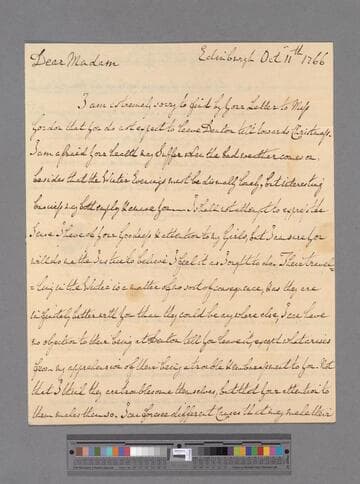 Dear Madam Edinburgh Octr 11th 1766
I am extremely sorry to find by your Letter to Miss
Gordon that you do not expect to leave Denton till towards Christmass
I am afraid your health may suffer when the bad weather comes on
besides that the Winter Evenings must be dismally lonely, but interesting
business may both employ & amuse you — I shall not attempt to express the
Sense I have of your Goodness & attention to my Girls, but I am sure you
will do me the Justice to believe I feel it as I ought to do. Their travel-
-ling in the Winter is a matter of no sort of Consequence, & as they are
infinitely better with you than they could be any where else, I can have
no objection to their being at Denton till you leave it, except what arises
from my apprehension of their being a trouble & embarrassment to you. Not
that I think they are troublesome themselves, but that your attention to
them makes them so. I can foresee different Causes that may make their